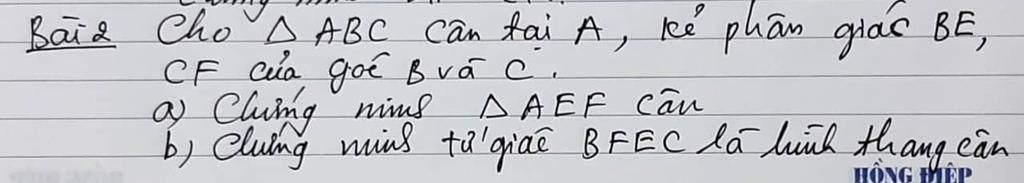 Bài 2 Cho △ ABC cân tại A, kẻ phân giác BE,
CF của góc B và C.
a) Chứng minh △ AEF cân
b) Chứng minh tứ giác BFEC là hình thang cân
HỒNG ĐIỆP